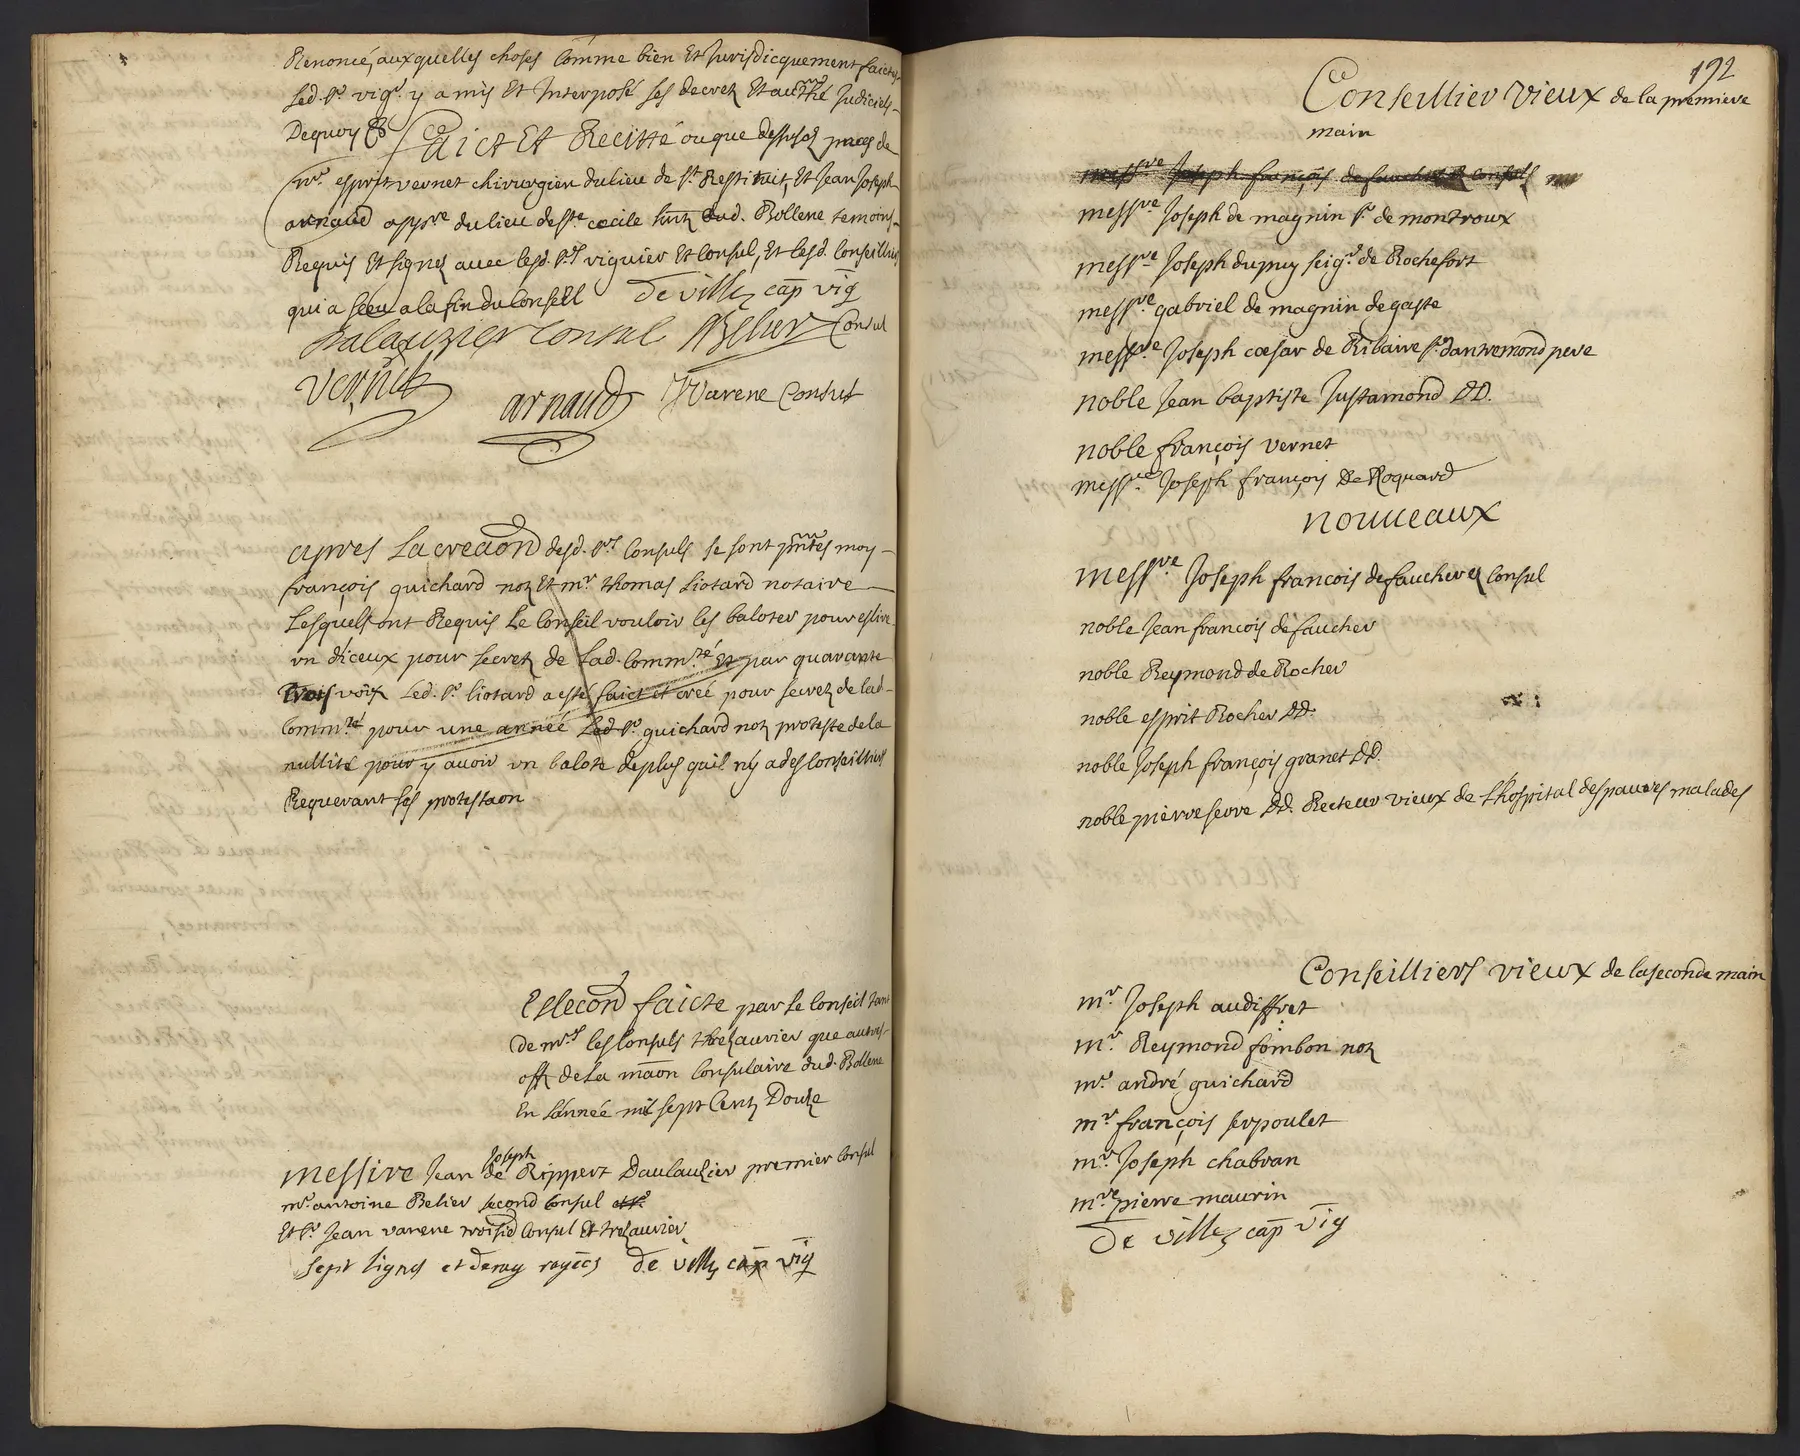 Renoncé, auxquelles choses Comme bien Et Jurisdicquement faictes
Led. Sr. vigr. y a mis Et Interposé ses decrez Et authté Judiciels
Dequoy &
faict Et Recitté ou que dessus ez pnces de
mr. esprit vernet chirurgien du lieu de St Restituit, Et Jean Joseph
arnaud du lieu de Ste cecile dud. Bollene temoins
Requis Et signez avec lesd. Srs viguier Et Consul, Et lesd. Conseilliers
qui a sceu a la fin du Conseil de villez cap vig
Dalauzier Consul ABelier Consul
Vernet arnaud JVarene Consul
apres La creaon desd. Srs Consuls se sont pntes moy
françois guichard noz Et mr thomas Liotard notaire
Lesquels ont Requis Le Conseil vouloir les baloter pour eslire
un diceux pour secrez de Lad. Commté Et par quarante
trois voix Led. Sr. liotard a esté faict et creé pour secrez de lad
Commté pour une année Led Sr. guichard noz proteste de la
nullité pour y avoir un balote de plus quil ny a des Conseilliers
Requerant ses protestaon
Eslecon faicte par le Conseil tant
De mrs les Consuls threzaurier que autres
offz de La maon Consulaire dud. Bollene
En L'année mil sept Centz Douze
Joseph
Messire Jean de Rippert Daulauzier premier Consul
mr. antoine Belier second Consul
Et Sr Jean varene troisie Consul Et trezaurier
sept lignes et demy rayées de villez cap vig
192
Conseillier vieux de la premiere
main
messre Joseph françois de faucher Consul
messre Joseph de magnin Sr de montroux
messre Joseph dupuy seigr de Rochefort
messre gabriel de magnin de gaste
messre Joseph cæsar de Ribaire Sr dantremond pere
noble Jean baptiste Justamond DD.
noble françois vernet
messre Joseph françois De Roquard
nouveaux
messre Joseph francois de faucher Consul
noble Jean francois de faucher
noble Reymond de Rocher
noble esprit Rocher DD.
noble Joseph françois granet DD.
noble pierre serre DD. Recteur vieux de Lhospital des pauvres malades
Conseilliers vieux de la seconde main
mr Joseph audiffret
mr. Reymond fombon noz
mr. andré guichard
mr françois serpoulet
mr. Joseph chabran
mre pierre maurin
De villez cap vig